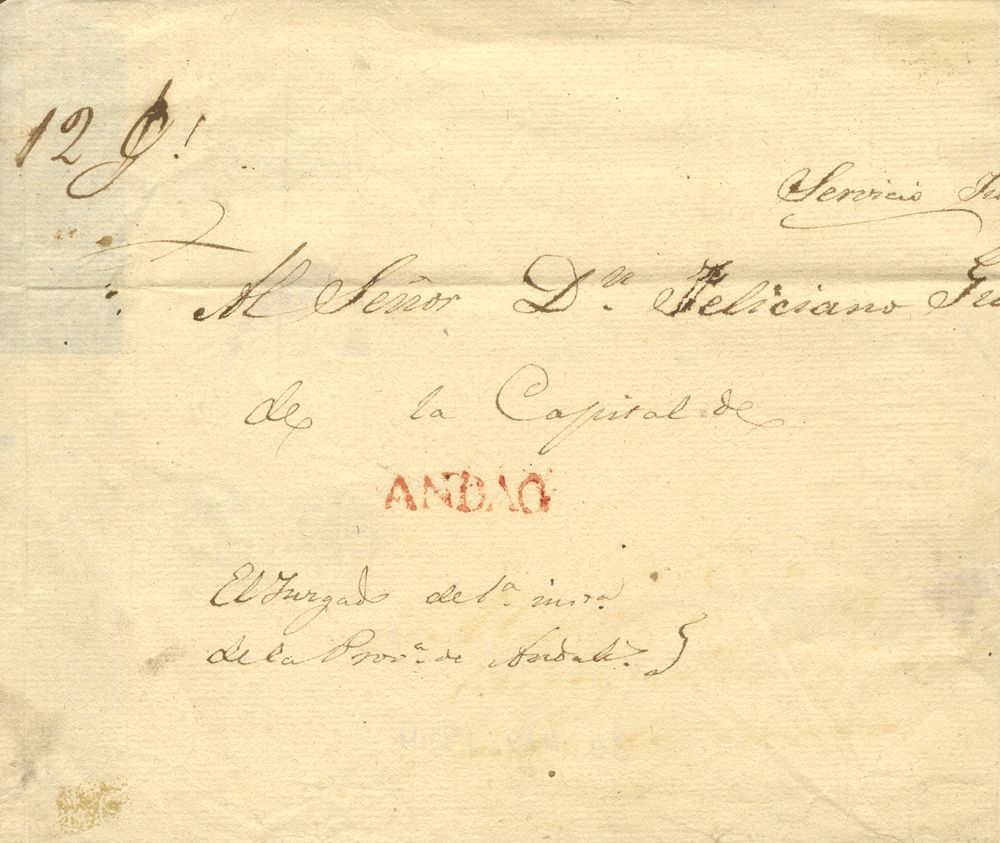 12
Servicio
Al Señor Dn. Feliciano
de la Capital de
ANDAG
El Juzgado de 1ª. insta.
de la Prova. de